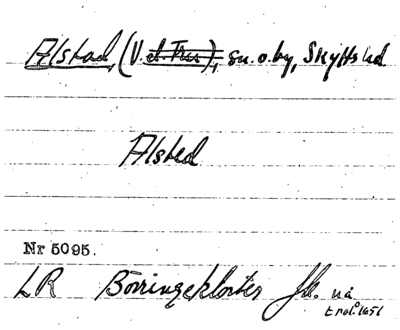 Alstad, (V. d. Tru), sn. o. by, Skytts hd
Alsted
Nr 5095.
LR Börringekloster Jb. nå
trol. 1651